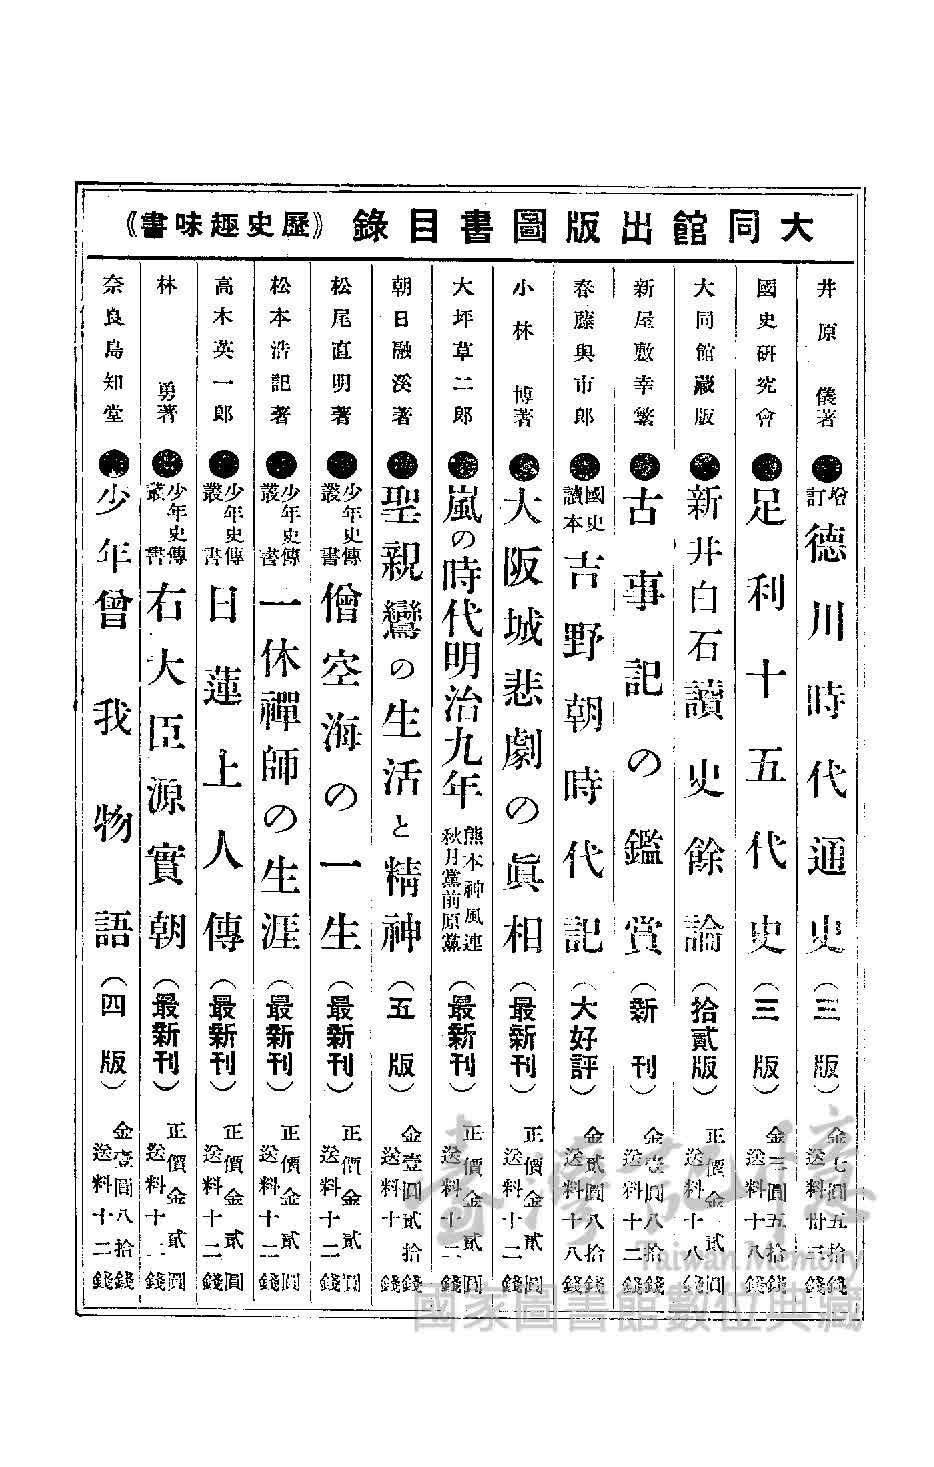 大同館出版圖書目錄《歷史趣味書》
井原儀著 ●增訂 德川時代通史(三版) 金七圓五拾錢 送料卅三錢
國史研究會 ●足利十五代史(三版) 金三圓五拾錢 送料十八錢
大同館藏版 ●新井白石讀史餘論(拾貳版) 正價金貳圓 送料十八錢
新屋敷幸繁 ●古事記の鑑賞(新刊) 金壹圓八拾錢 送料十二錢
春藤與市郎 ●國史讀本 吉野朝時代記(大好評) 金貳圓八拾錢 送料十八錢
小林博著 ●大阪城悲劇の眞相(最新刊) 正價金貳圓 送料十二錢
大坪草二郎 ●嵐の時代明治九年 熊本神風連 秋月黨前原黨(最新刊) 正價金貳圓 送料十二錢
朝日融溪著 ●聖親鸞の生活と精神(五版) 金壹圓貳拾錢 送料十錢
松尾直明著 ●少年史傳叢書 僧空海の一生(最新刊) 正價金貳圓 送料十二錢
松本浩記著 ●少年史傳叢書 一休禪師の生涯(最新刊) 正價金貳圓 送料十二錢
高木英一郎 ●少年史傳叢書 日蓮上人傳(最新刊) 正價金貳圓 送料十二錢
林勇著 ●少年史傳叢書 右大臣源實朝(最新刊) 正價金貳圓 送料十二錢
奈良島知堂 ●少年曾我物語(四版) 金壹圓八拾錢 送料十二錢
臺灣記憶
Taiwan Memory
國家圖書館數位典藏